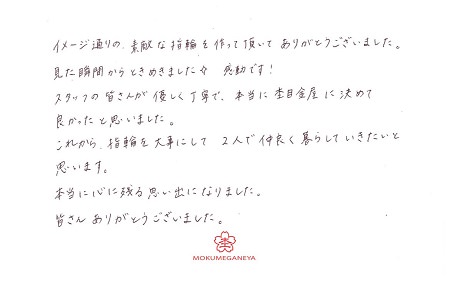 イメージ通りの、素敵な指輪を作って頂いて ありがとうございました。
見た瞬間からときめきました☆ 感動です!
スタッフの皆さんが 優しく丁寧で、本当に 杢目金屋に 決めて
良かったと思いました。
これから、指輪を大事にして 2人で仲良く暮らしていきたいと
思います。
本当に心に残る思い出になりました。
皆さん ありがとうございました。
MOKUMEGANEYA